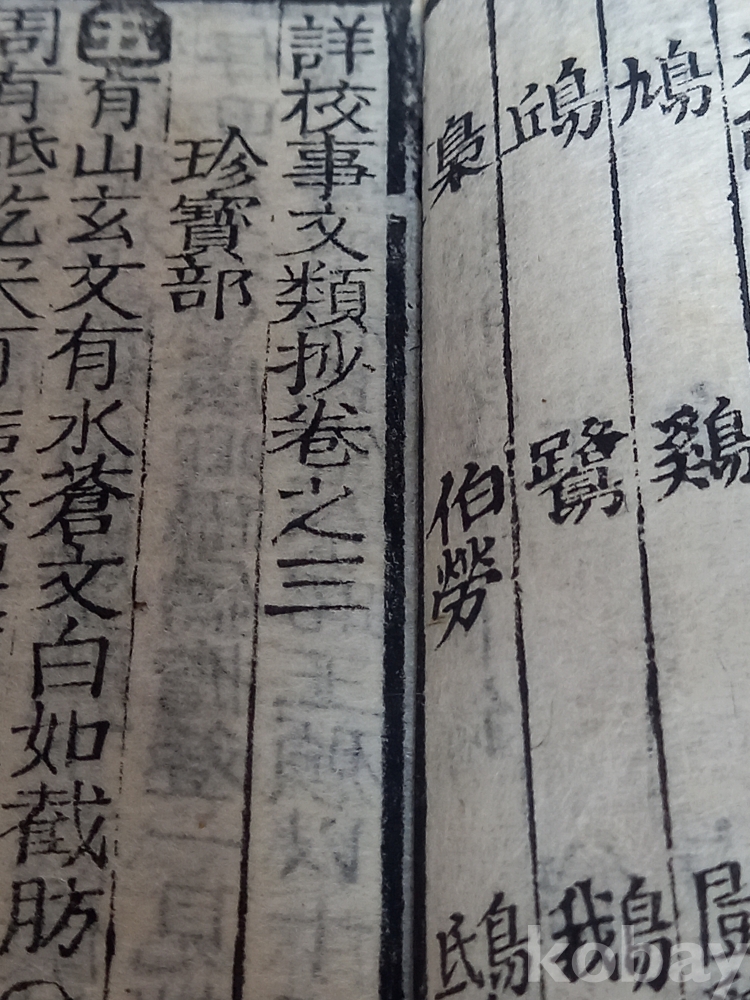 鳩 鷄
鷺 鵝
梟 伯勞 鴟
詳校事文類抄卷之三
珍寶部
玉有山玄文有水蒼文白如截肪
周有